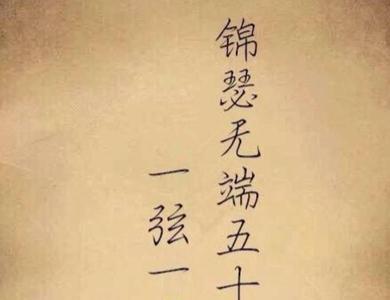 锦瑟无端五十
一弦一